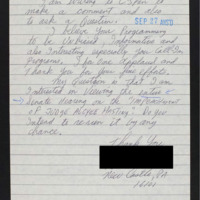 I am writing to C-Span to
make a comment and also
to ask a question. SEP 27 1989
I believe your Programming
to be Unbiased Informative and
also Interesting especially your Call-In
Programs. I for one Applaud and
Thank you for your fine efforts.
My Question is that I am
Interested in Viewing the entire
Senate Hearing on the "Impeachment
of Judge Alcee Hastings". Do you
Intend to re-air it by any
chance.
Thank You
New Castle, PA
16101